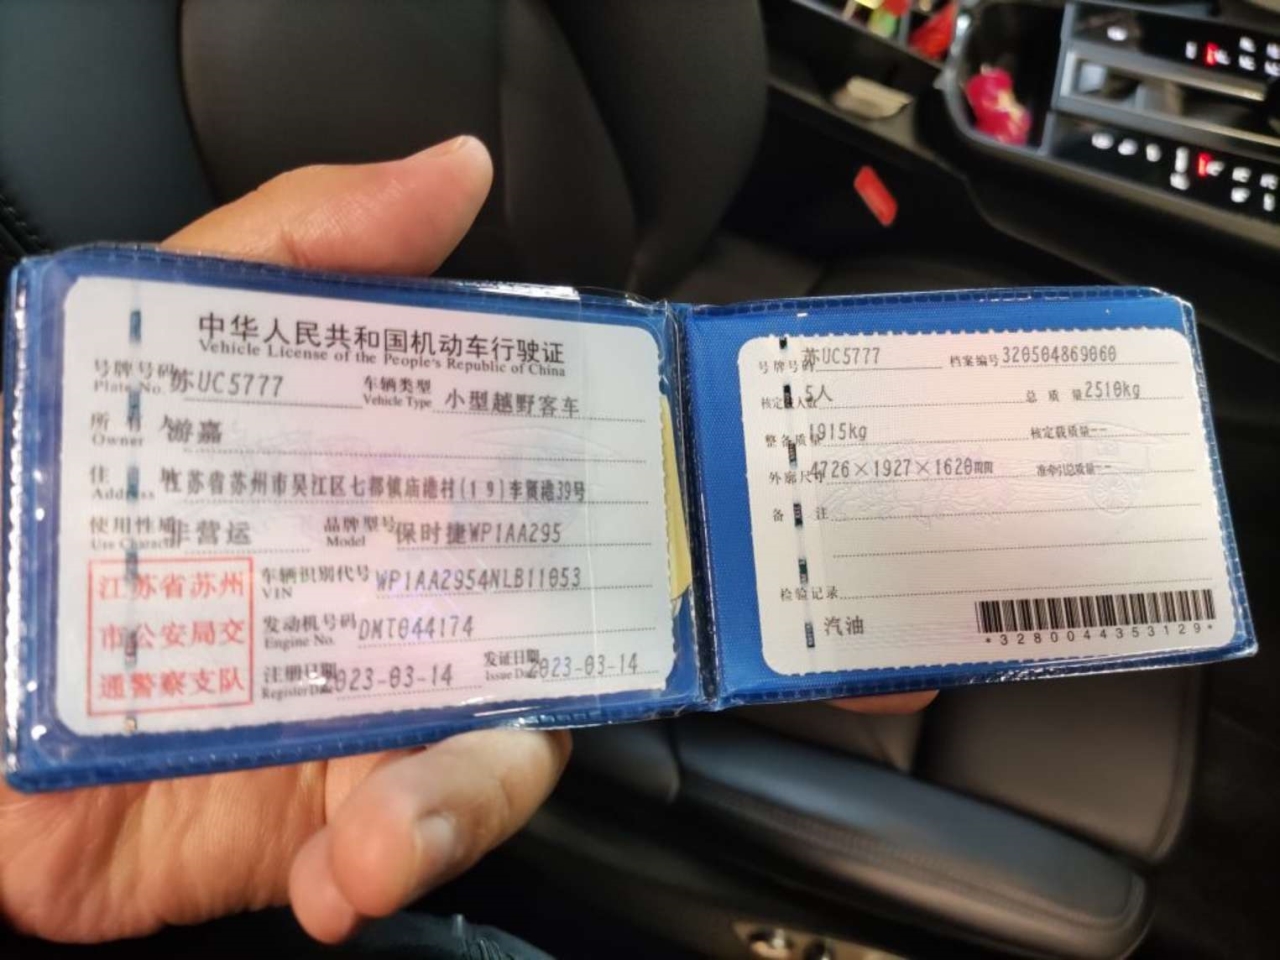 中华人民共和国机动车行驶证
Vehicle License of the People's Republic of China
号牌号码 苏UC5777 车辆类型 小型越野客车
Plate No. Vehicle Type
所有人 游嘉
Owner
住址 江苏省苏州市吴江区七都镇庙港村(19)李家港39号
Address
使用性质 非营运 品牌型号 保时捷WP1AA295
Use Character Model
江苏省苏州
市公安局交
通警察支队
车辆识别代号 WP1AA2954NLB11053
VIN
发动机号码 DMT044174
Engine No.
注册日期 2023-03-14 发证日期 2023-03-14
Register Date Issue Date
号牌号码 苏UC5777 档案编号 320504869060
核定载人数 5人 总质量 2510kg
整备质量 1915kg 核定载质量 --
外廓尺寸 4726×1927×1620mm 准牵引总质量 --
备注
检验记录
汽油
*3280044353129*